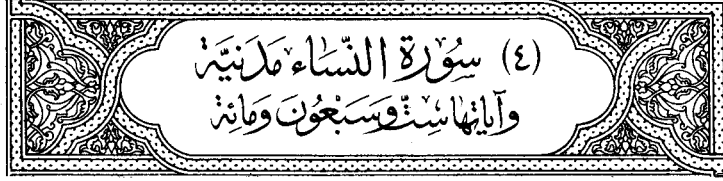 (٤) سُورَةُ النِّسَاءِ مَدَنِيَّةٌ
وَآيَاتُهَا سِتٌّ وَسَبْعُونَ وَمِائَةٌ